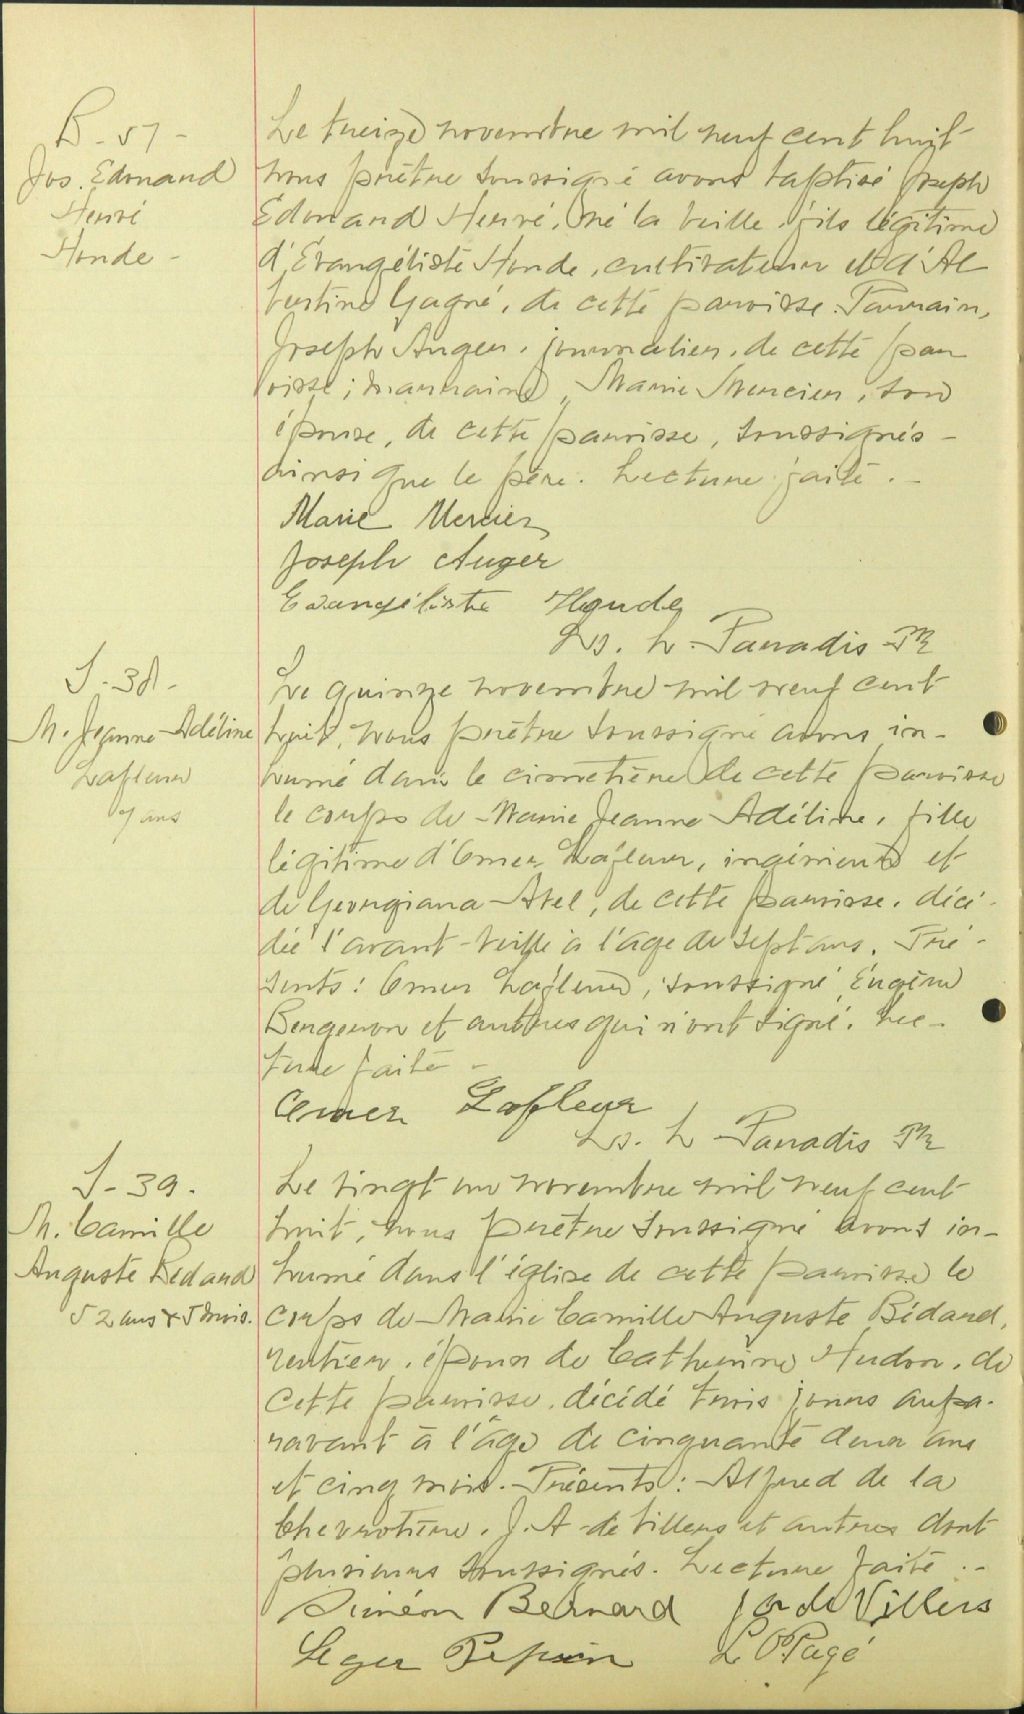 B - 57 -
Jos. Edouard
Hervé
Houde -
Le treize novembre mil neuf cent huit
nous prêtre soussigné avons baptisé Joseph
Edouard Hervé, né la veille, fils légitime
d'Evangéliste Houde, cultivateur et d'Al
bertine Gagné, de cette paroisse. Parrain,
Joseph Auger, journalier, de cette pa
roisse; marraine, Marie Mercier, son
épouse, de cette paroisse, soussignés -
ainsi que le père. Lecture faite. -
Marie Mercier
Joseph Auger
Evangéliste Houde
Ls. h. Paradis Ptre
S - 38 -
M. Jeanne-Adéline
Lafleur
7 ans
Le quinze novembre mil neuf cent
huit, nous prêtre soussigné avons in-
humé dans le cimetière de cette paroisse
le corps de Marie Jeanne Adéline, fille
légitime d'Omer Lafleur, ingénieur et
de Georgiana Abel, de cette paroisse, décé-
dée l'avant-veille à l'âge de sept ans. Pré-
sents: Omer Lafleur, soussigné, Eugène
Bergeron et autres qui n'ont signé. Lec-
ture faite -
Omer Lafleur
Ls. h. Paradis Ptre
S - 39.
M. Camille
Auguste Bédard
52 ans & 5 mois.
Le vingt un novembre mil neuf cent
huit, nous prêtre soussigné avons in-
humé dans l'église de cette paroisse le
corps de Marie Camille Auguste Bédard,
rentier, époux de Catherine Hudon, de
cette paroisse, décédé trois jours aupa-
ravant à l'âge de cinquante deux ans
et cinq mois. - Présents: Alfred de la
Chevrotière, J. A. de Villers et autres dont
plusieurs soussignés. Lecture faite. -
Siméon Bernard J A de Villers
Leger Pepin L O Pagé